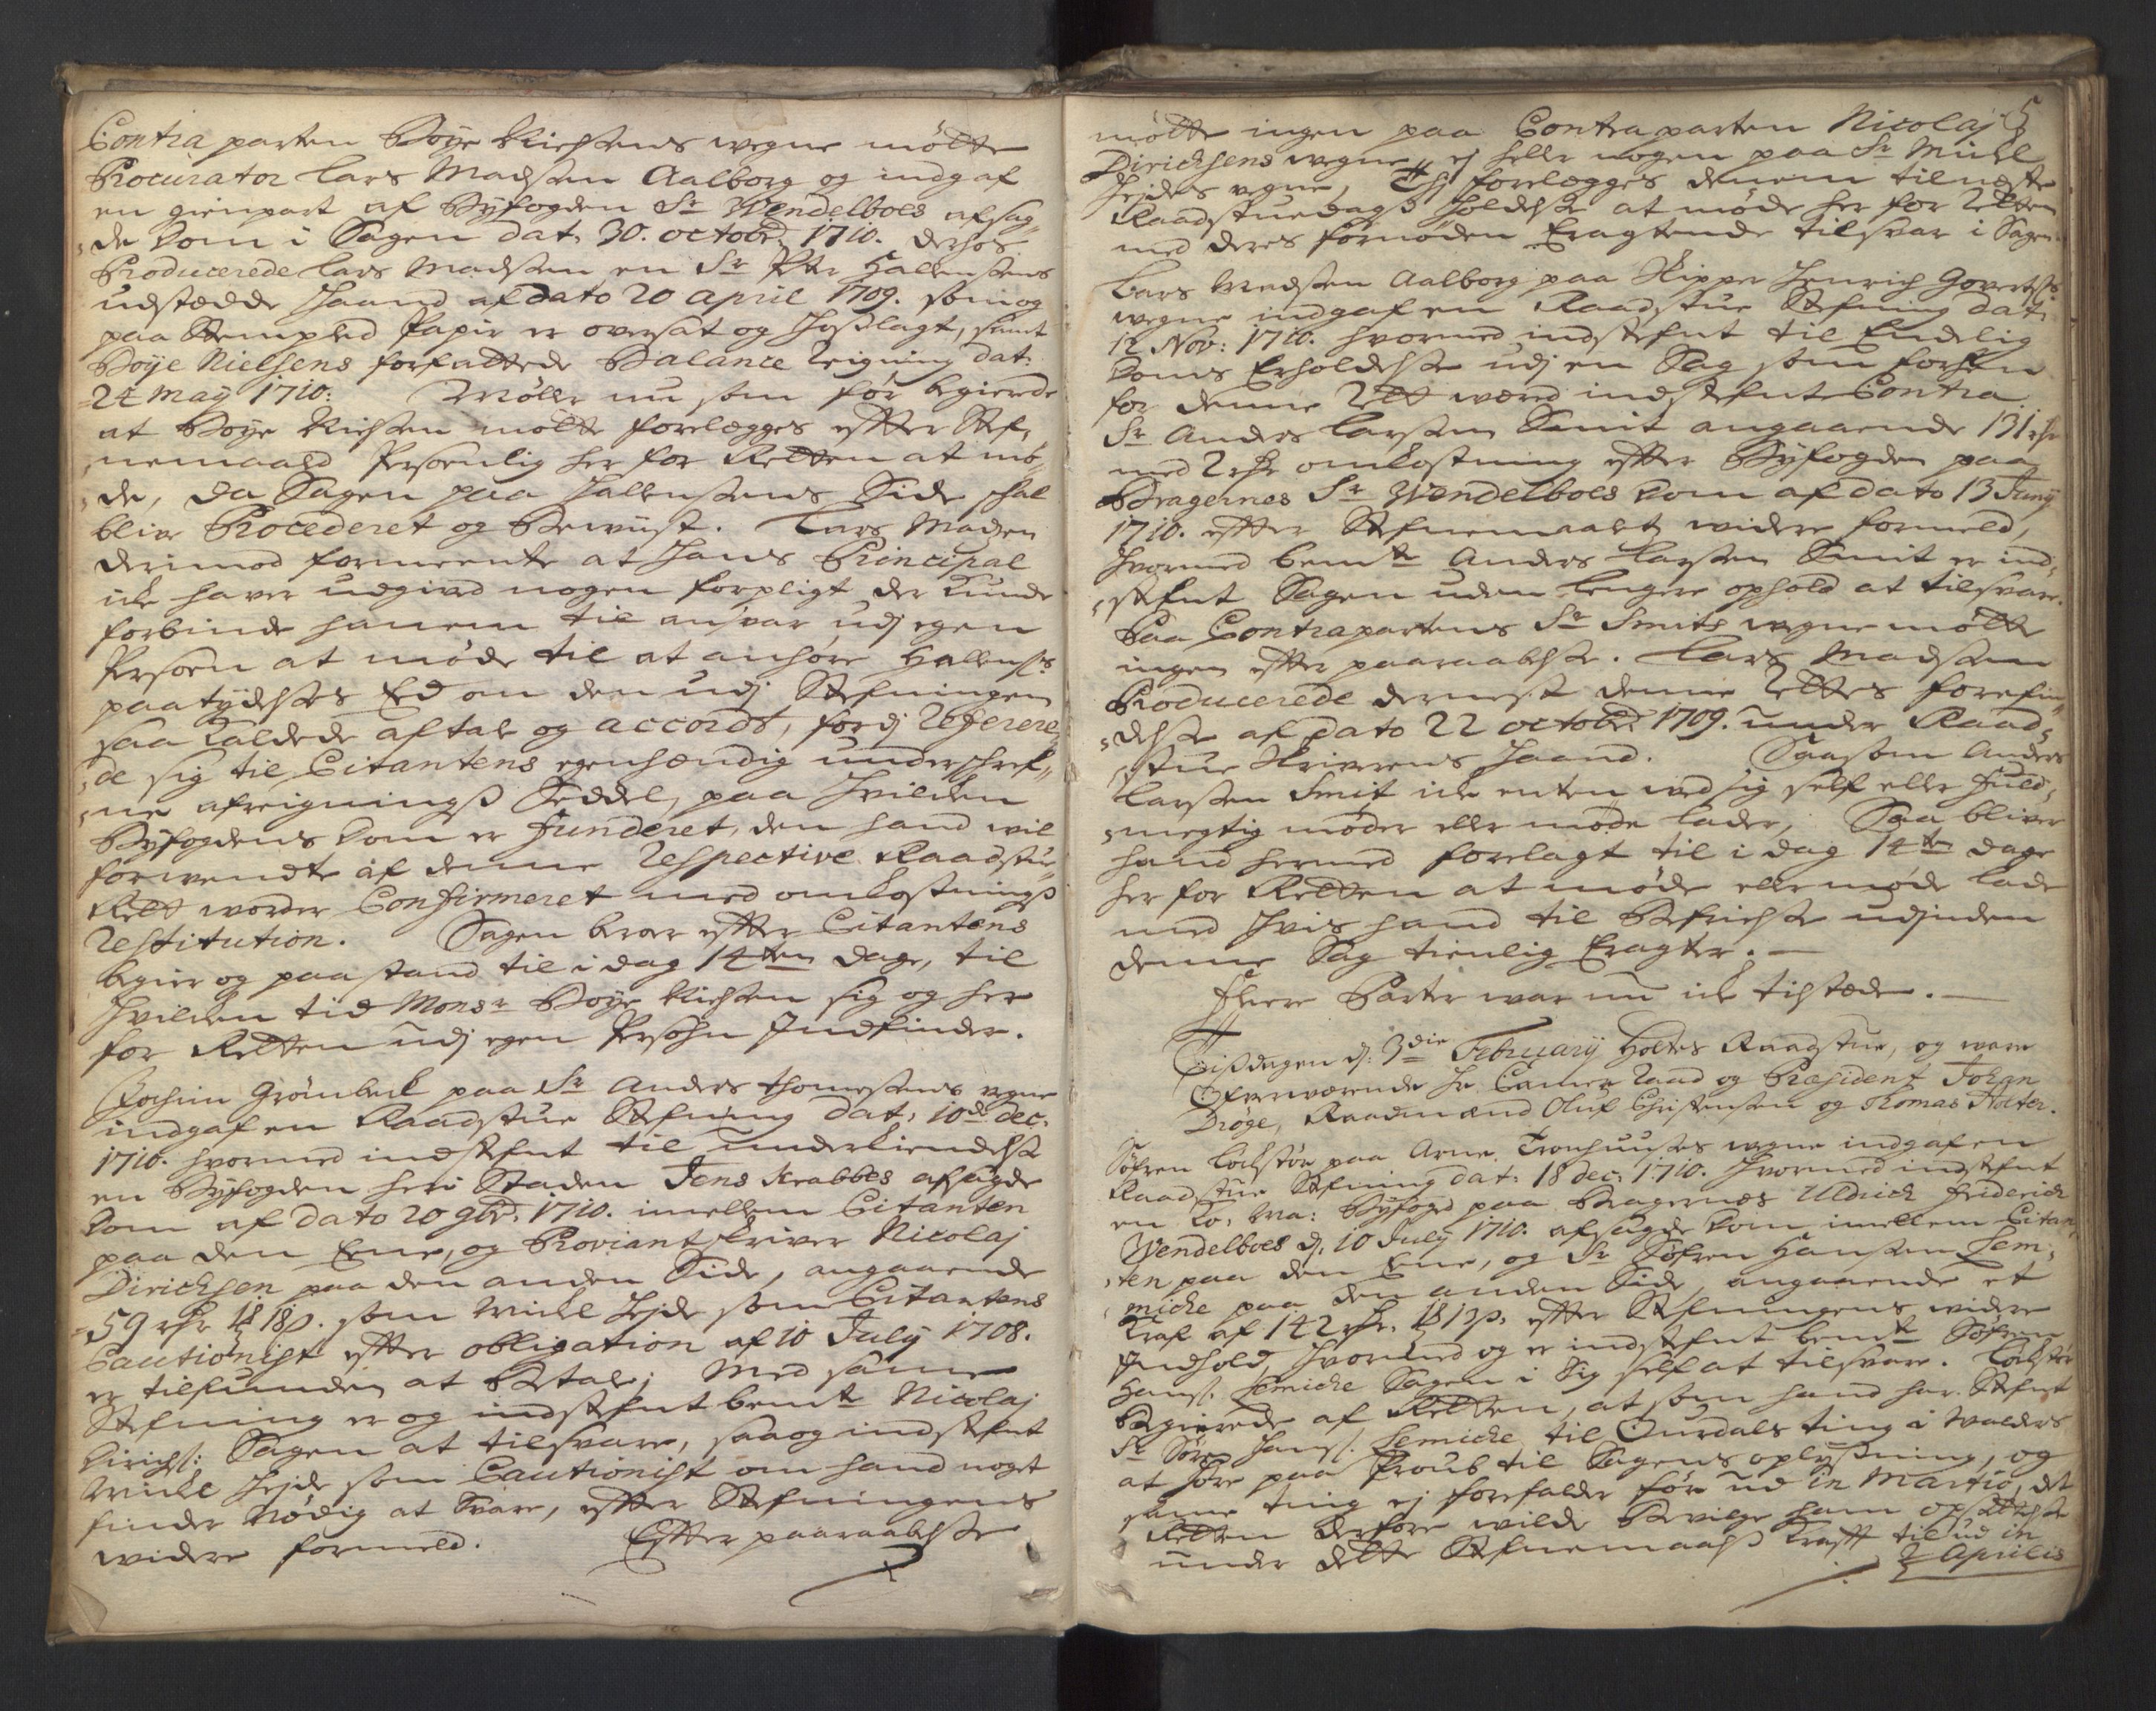 Contra parten Boye Nielsens wegne mötte
Procurator Lars Madsen Aalborg og indgaf
en gienpart af Byfogden Sr Wendelboes afsag„
„de Dom i Sagen dat. 30. octobr: 1710. derhos
Producerede Lars Madsen en Sr Peter Hallensens
udstædde Haand af dato 20 April 1709. som og
paa Stempled Papir er oversat og Hoslagt, samt
Boye Nielsens forfattede Balance Reigning dat:
24 May 1710: Møller nu som før begierede
at Boye Nielsen motte forelegges effter Stef„
„nemaald Persoenlig her for Retten at mö„
„de, da Sagen paa Hallensens Side skal
blive Procederet og Bewiist. Lars Madsen
derimod formeente at Hans Principal
icke haver udgived nogen forpligt der kunde
forbinde hannem til ansvar udj egen
Persoen at møde til at anhøre Hallens:s
paatydelses Ed om den udj Stefningen
saa kaldede aftale og accordt, fordj Refererer„
„de sig til Citantens egenhændig underskref„
„ne afreignings Seddel, paa Hvilken
Byfogdens Dom er funderet, den hand wil
forwendte af denne Respective Raadstue„
Rett worder Confirmeret med omkostnings
Restitution. Sagen beror effter Citantens
begier og paastand til i dag 14ten dage, til
Hvilken tid Monsr Boye Nielsen sig og her
for Retten udj egen Persohn Indfinder.
Jochim Grönbeck paa Sr Anders Thomesens wegne
indgaf en Raadstue Stefning dat: 10de dec:
1710. hvormed indstefnt til underkiendelse
en Byfogden heri Staden Jens Krabbes afsagde
Dom af dato 20 9br: 1710. imellem Citanten
paa den Eene, og Proviantskriver Nicolaj
Dirichsen paa den anden Side, angaaende
59 rdr 18 s. som Michel Hejde som Citantens
Cautionist effter obligation af 10 July 1708.
er tilfunden at Betale; Med samme
Stefning er og indstefnt bemte Nicolaj
Dirichs: Sagen at tilsvare, saa og indstefnt
Michel Hejde som Cautionist om hand noget
finder Nödig at Svare, effter Stefningens
widere formeld. Effter paaraabelse
5
mötte ingen paa Contraparten Nicolaj
Dirichsens wegne, ej heller nogen paa Sr Michel
Hejdes wegne, Thj forelegges dennem til neste
Raadstuedags Holdelse at møde her for Retten
med deres fornøden Eragtende tilsvar i Sagen.
Lars Madsen Aalborg paa Skipper Henrich Goverts:s
wegne indgaf en Raadstue Stefning dat:
12 Nov: 1710. hvormed indstefnt til Endelig
Doms Erholdelse udj en Sag som forhen
for denne Rett wæred indstefnt Contra
Sr Anders Larsen Smit angaaende 131 rdr
med 2 rdr omkostning effter Byfogden paa
Bragernes Sr Wendelboes Dom af dato 13 Junij
1710. effter Stefnemaalets widere formeld,
Hvormed bemte Anders Larsen Smit er ind„
„stefnt Sagen uden lengere ophold at tilsvare.
Paa Contrapartens Sr Smits wegne mötte
ingen effter paaraabelse. Lars Madsen
Producerede dernest denne Rettes forefin„
„delse af dato 22 octobr: 1709. under Raad„
„stue Skriverens Haand. Saasom Anders
Larsen Smit icke enten wed sig self eller fuld„
„megtig møder eller møde lader, Saa bliver
hand hermed forelagt til i dag 14ten dage
her for Retten at møde eller møde lade
med Hvis hand til Befrielse udjinden
denne Sag tienlig Eragter.—
Fleere Parter war nu icke tilstæde.—
Tissdagen d: 3die February Holtes Raadstue, og ware
Ofverwærende Hr Camer Raad og Præsident Johan
Dröge, Raadmænd Oluf Christensen og Thomas Nolter.
Söfren Lochstör paa Arne Tronhuuses wegne indgaf en
Raadstue Stefning dat: 18 dec: 1710. Hvormed indstefnt
en Ko: Ma: Byfogd paa Bragernes Uldrich Friderich
Wendelboes d: 10 July 1710. afsagde Dom imellem Citan„
„ten paa den Eene, og Sr Söfren Hansen Lem„
„miche paa den anden Side, angaaende et
Kraf af 142 rdr. effter Stefningens widere
Indhold, Hvormed og er indstefnt bemte Söfren
Hans: Lemiche Sagen i Sig self at tilsvare. Lochstör
Begierede af Retten, at som hand har Stefnt
Sr Sör: Hans: Lemiche til Ourdals ting i Walders
at höre paa Proub til Sagens oplysning, og
samme ting ej forefalder för ud in Martio, det
Retten derfore wilde Bevilge ham opsettelse
under dette Stefnemaals Krafft til ud in
Aprilis